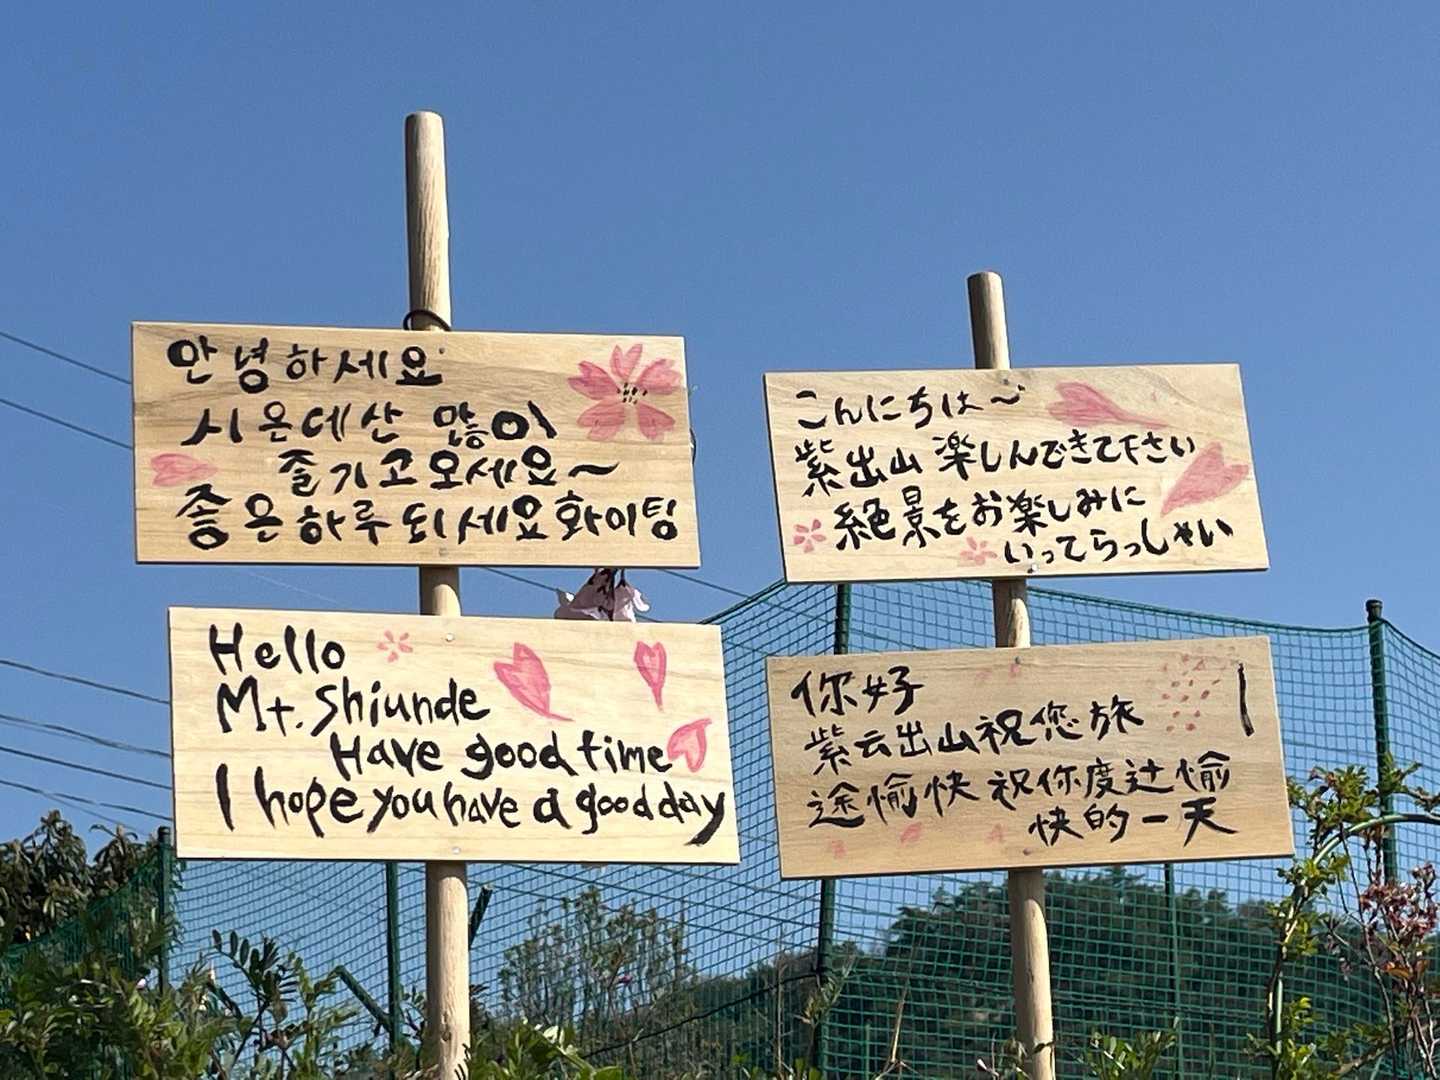 안녕하세요
시온데산 많이
즐기고 오세요~
좋은 하루 되세요 화이팅
Hello
Mt. Shiunde
Have good time
I hope you have a good day
こんにちは〜
紫出山 楽しんできて下さい
絶景をお楽しみに
いってらっしゃい
你好
紫云出山祝您旅
途愉快 祝你度过愉
快的一天